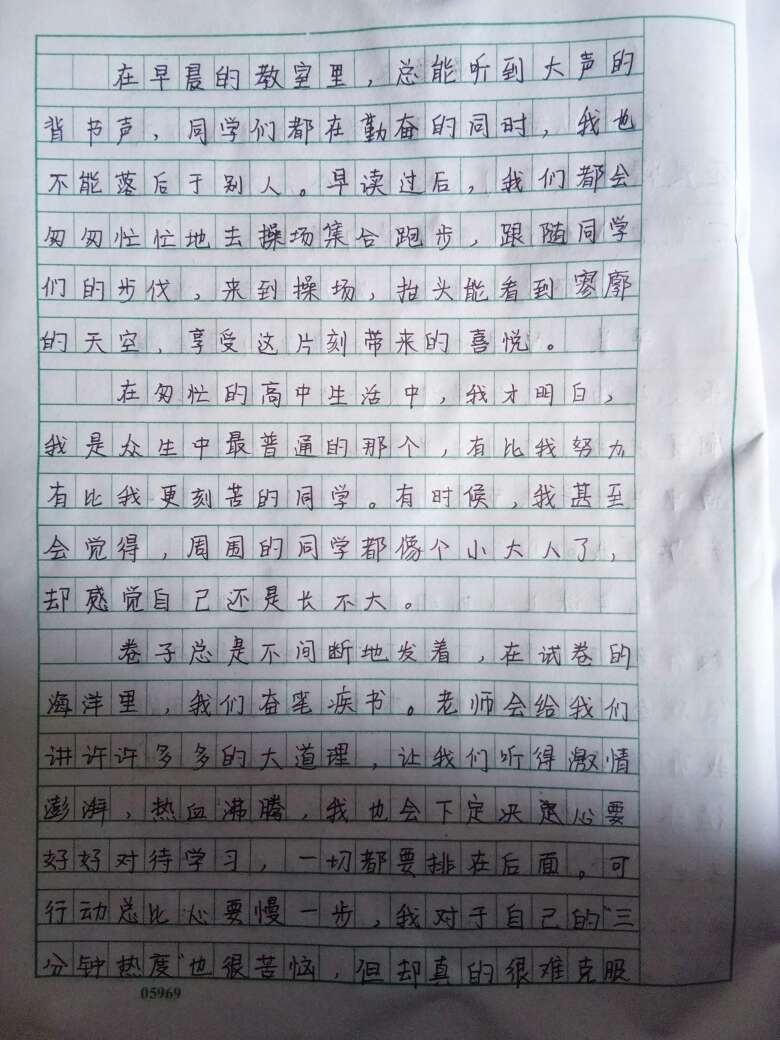 在早晨的教室里，总能听到大声的
背书声，同学们都在勤奋的同时，我也
不能落后于别人。早读过后，我们都会
匆匆忙忙地去操场集合跑步，跟随同学
们的步伐，来到操场，抬头能看到寥廓
的天空，享受这片刻带来的喜悦。
在匆忙的高中生活中，我才明白，
我是众生中最普通的那个，有比我努力
有比我更刻苦的同学。有时候，我甚至
会觉得，周围的同学都像个小大人了，
却感觉自己还是长不大。
卷子总是不间断地发着，在试卷的
海洋里，我们奋笔疾书。老师会给我们
讲许许多多的大道理，让我们听得激情
澎湃，热血沸腾，我也会下定决心要
好好对待学习，一切都要排在后面。可
行动总比心要慢一步，我对于自己的“三
分钟热度”也很苦恼，但却真的很难克服
05969